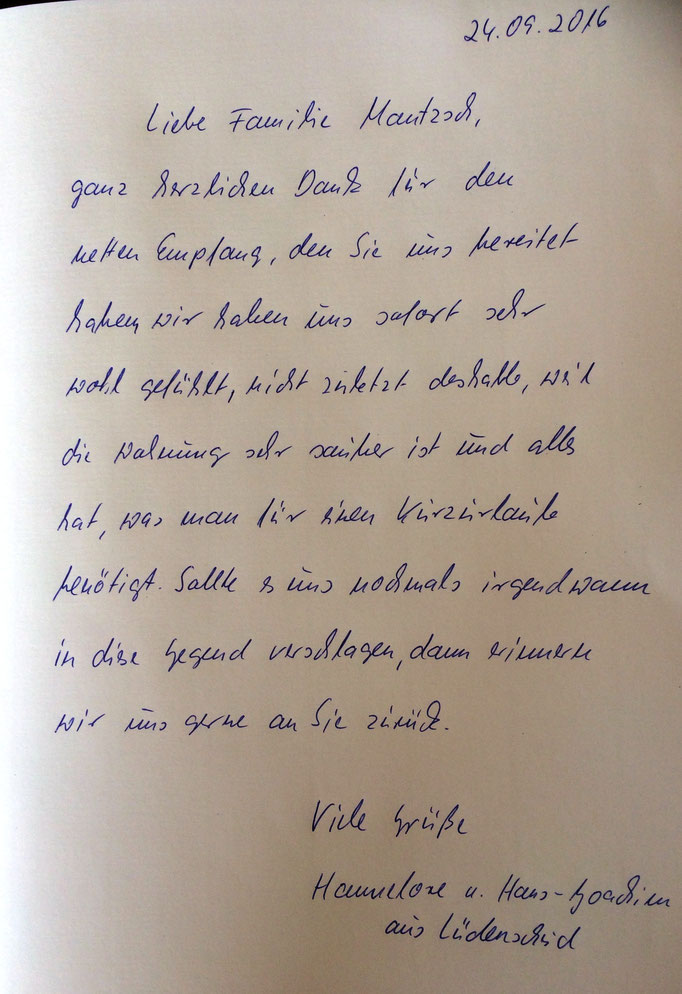 24.09.2016
Liebe Familie Mantzsch,
ganz herzlichen Dank für den
netten Empfang, den Sie uns bereitet
haben, wir haben uns sofort sehr
wohl gefühlt, nicht zuletzt deshalb, weil
die Wohnung sehr sauber ist und alles
hat, was man für einen Kurzurlaub
benötigt. Sollte es uns nochmals irgendwann
in diese Gegend verschlagen, dann erinnern
wir uns gerne an Sie zurück.
Viele Grüße
Hannelore u. Hans-Joachim
aus Lüdenscheid